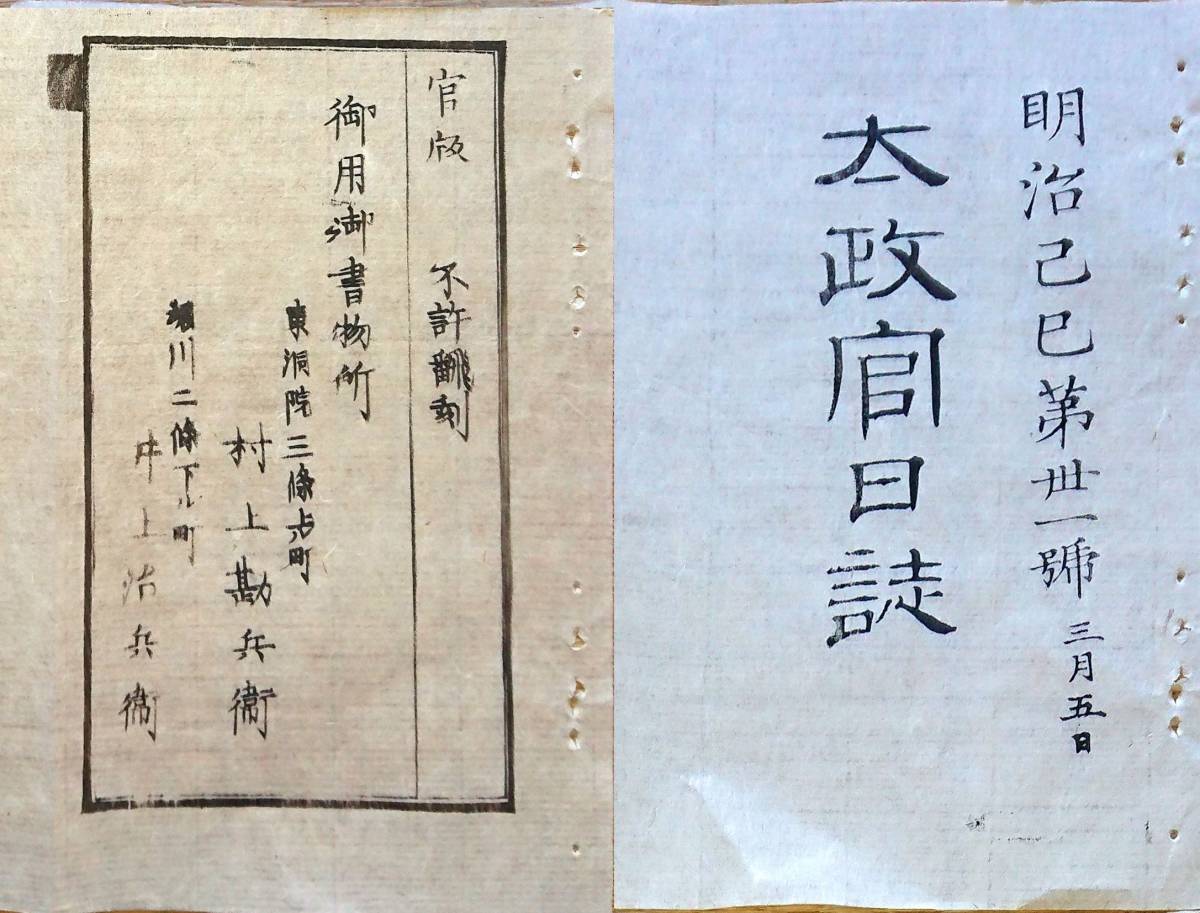 明治己巳第丗一號 三月五日
太政官日誌
官版 不許飜刻
御用御書物所
東洞院三條上ル町
村上勘兵衞
堀川二條下ル町
井上治兵衞